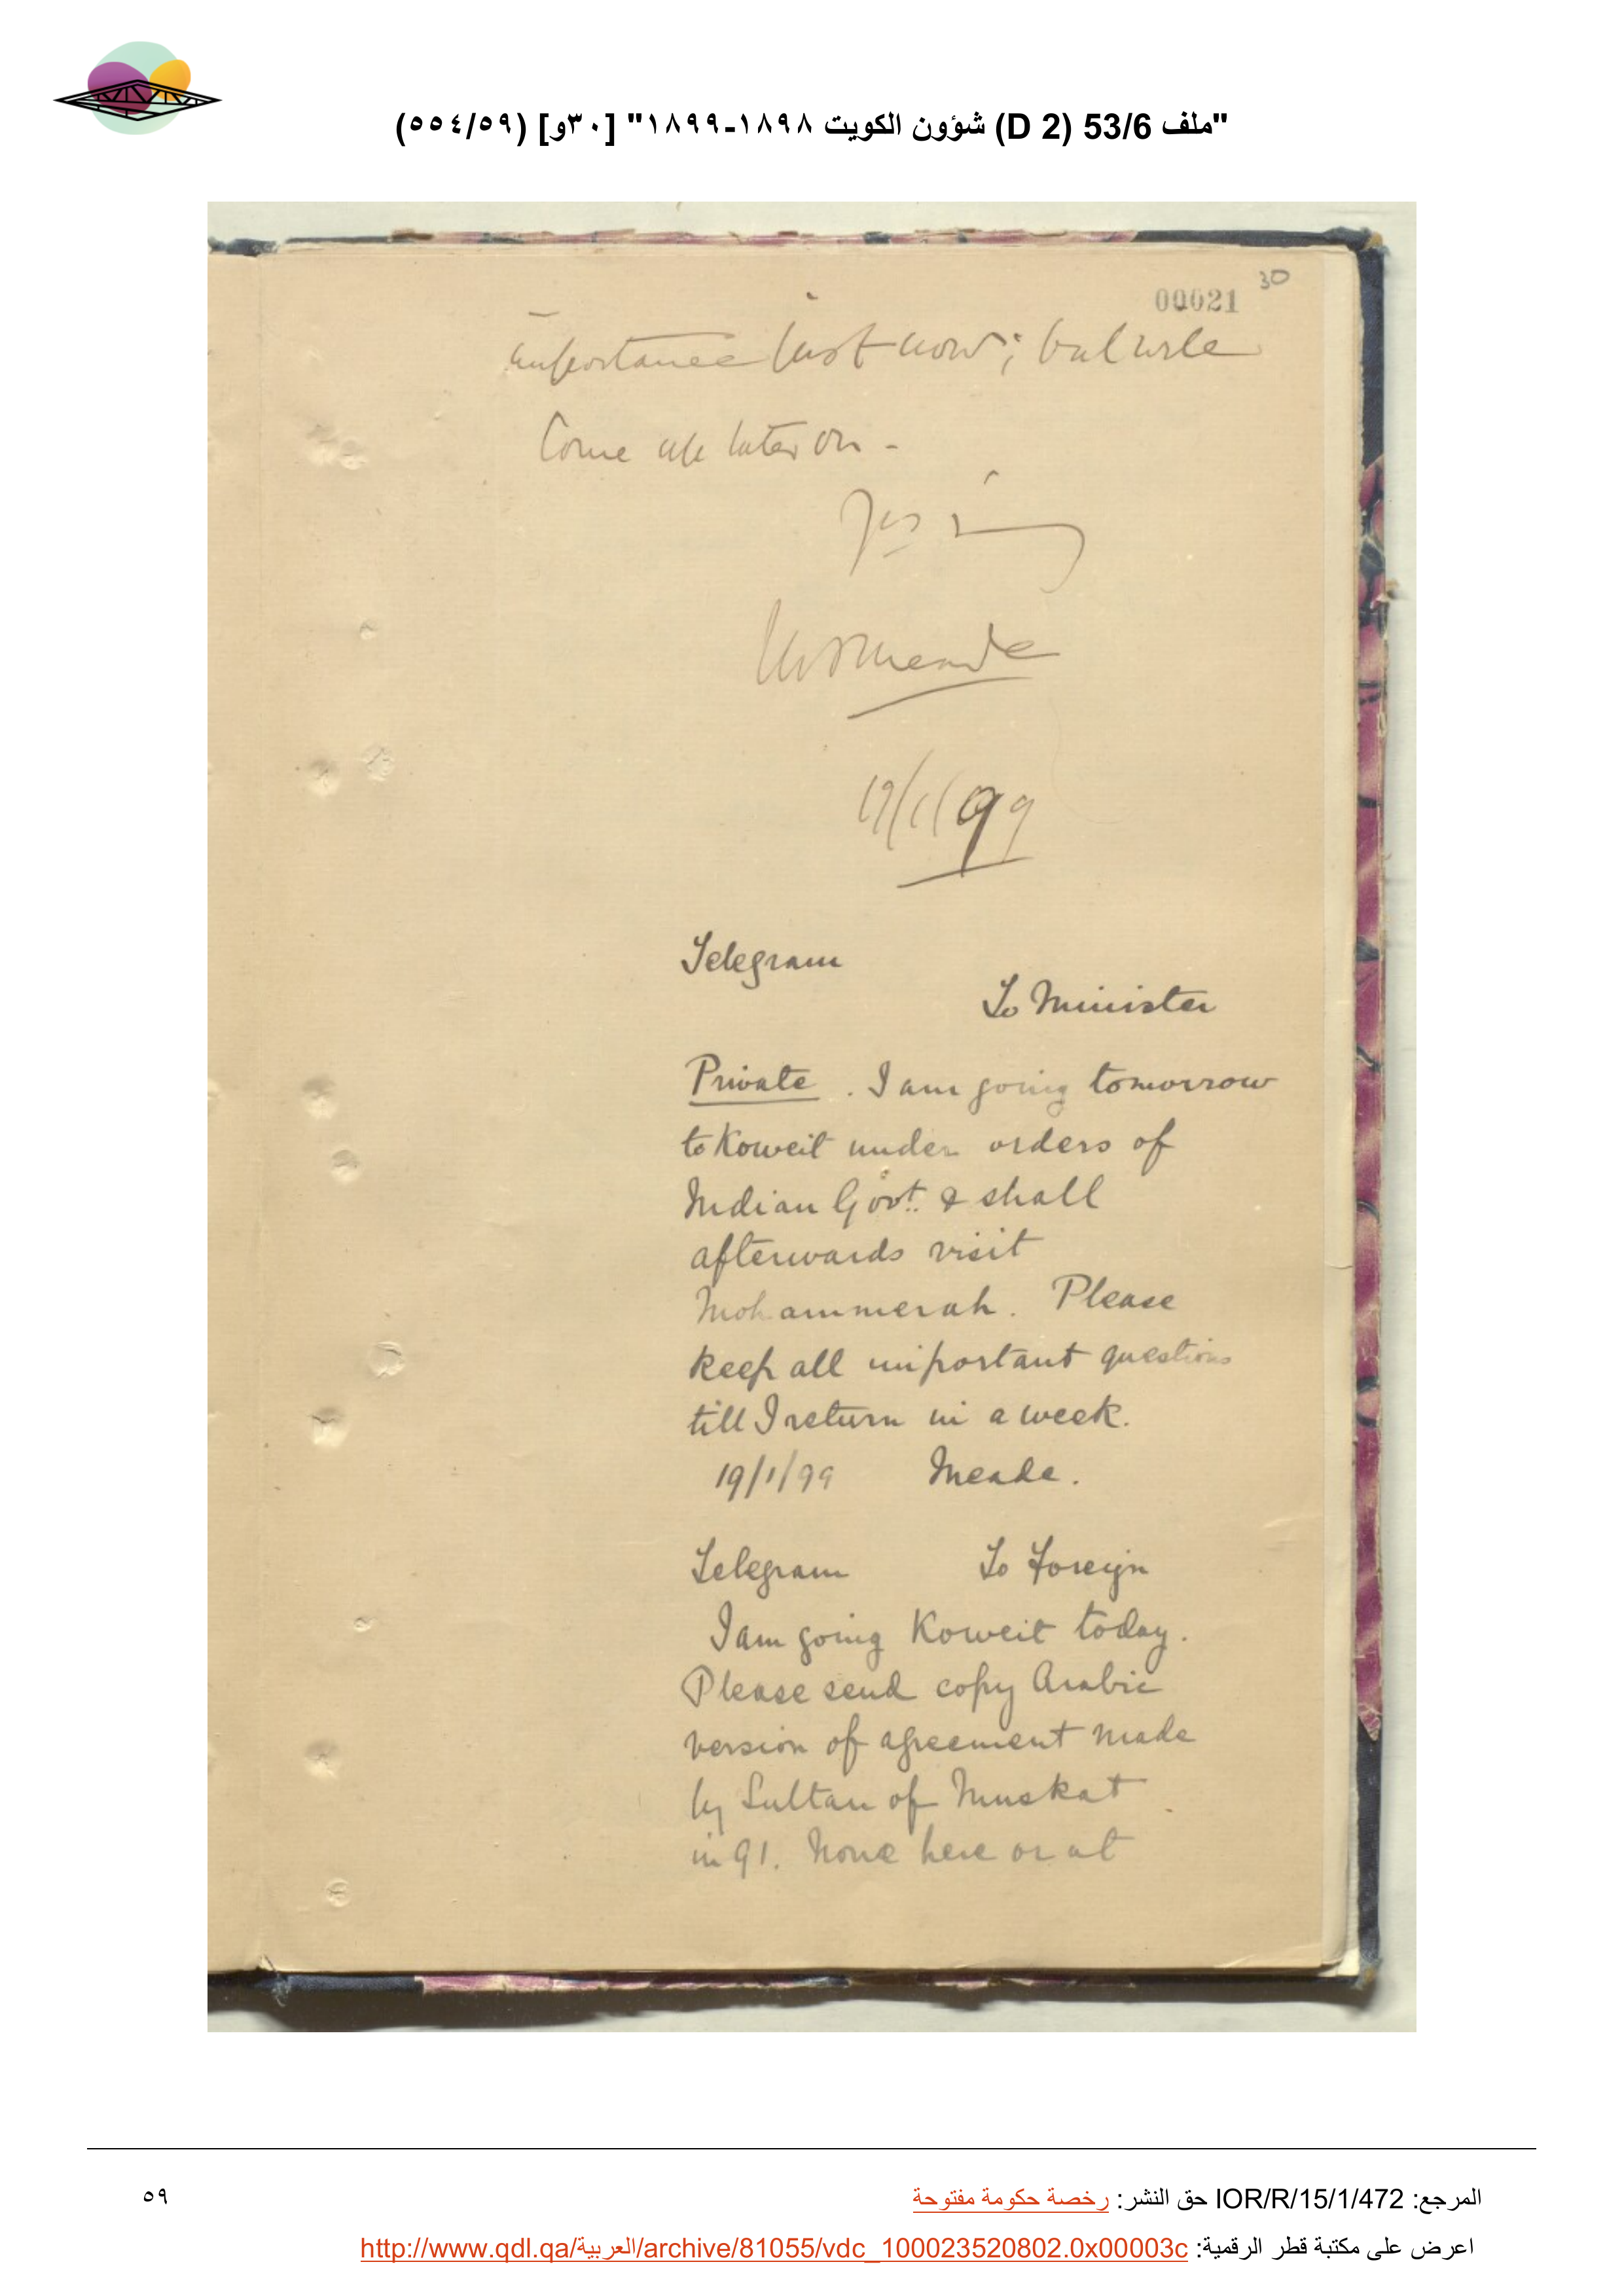 "ملف 53/6 (D 2) شؤون الكويت ١٨٩٨-١٨٩٩" [٣٠و] (٥٥٤/٥٩)
30
00021
importance just now; but will
Come up later on -
MJMeade
19/1/99
Telegram
To Minister
Private. I am going tomorrow
to Koweit under orders of
Indian Govt. & shall
afterwards visit
Mohammerah. Please
keep all important questions
till I return in a week.
19/1/99 Meade.
Telegram To Foreign
I am going Koweit today.
Please send copy Arabic
version of agreement made
by Sultan of Muskat
in 91. None here or at
المرجع: IOR/R/15/1/472 حق النشر: رخصة حكومة مفتوحة
٥٩
اعرض على مكتبة قطر الرقمية: http://www.qdl.qa/العربية/archive/81055/vdc_100023520802.0x00003c